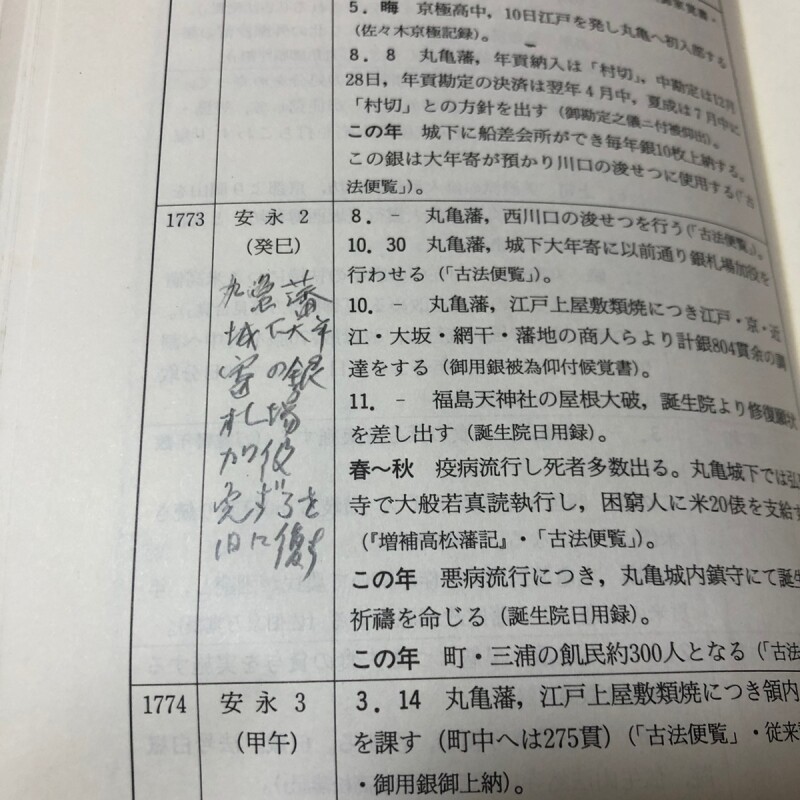 5. 晦　京極高中，10日江戸を発し丸亀へ初入部する
（佐々木京極記録）。
8. 8　丸亀藩，年貢納入は「村切」，中勘定は12月
28日，年貢勘定の決済は翌年4月中，夏成は7月中に
「村切」との方針を出す（御勘定之儀ニ付被仰出）。
この年　城下に船差会所ができ毎年銀10枚上納する。
この銀は大年寄が預かり川口の浚せつに使用する（「古
法便覧」）。
1773　安永2
（癸巳）
8. −　丸亀藩，西川口の浚せつを行う（「古法便覧」）。
10. 30　丸亀藩，城下大年寄に以前通り銀札場加役を
行わせる（「古法便覧」）。
10. −　丸亀藩，江戸上屋敷類焼につき江戸・京・近
江・大坂・網干・藩地の商人らより計銀804貫余の調
達をする（御用銀被為仰付候覚書）。
11. −　福島天神社の屋根大破，誕生院より修復願状
を差し出す（誕生院日用録）。
春～秋　疫病流行し死者多数出る。丸亀城下では弘
寺で大般若真読執行し，困窮人に米20俵を支給す
（『増補高松藩記』・「古法便覧」）。
この年　悪病流行につき，丸亀城内鎮守にて誕生
祈禱を命じる（誕生院日用録）。
この年　町・三浦の飢民約300人となる（「古法
丸亀藩
城下大年
寄の銀
札場
加役
旧に復す
1774　安永3
（甲午）
3. 14　丸亀藩，江戸上屋敷類焼につき領内
を課す（町中へは275貫）（「古法便覧」・従来
・御用銀御上納）。